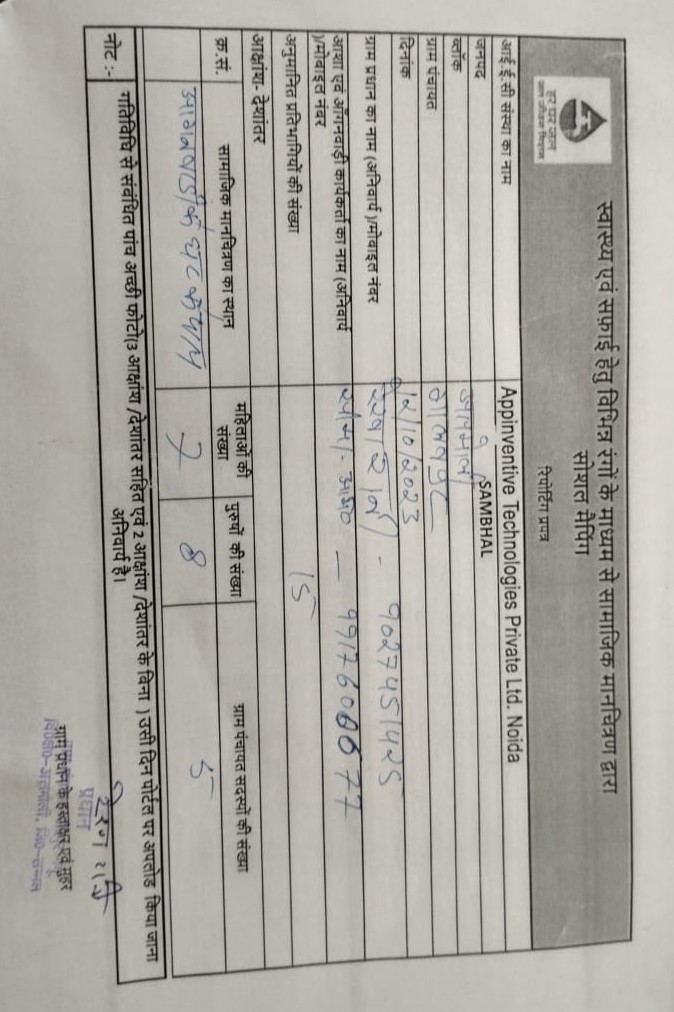 हर घर जल
जल जीवन मिशन
स्वास्थ्य एवं सफ़ाई हेतु विभिन्न रंगों के माध्यम से सामाजिक मानचित्रण द्वारा
सोशल मैपिंग
रिपोर्टिंग प्रपत्र
आई.ई.सी संस्था का नाम Appinventive Technologies Private Ltd. Noida
जनपद SAMBHAL
ब्लॉक
ग्राम पंचायत
दिनांक 12/10/2023
ग्राम प्रधान का नाम (अनिवार्य )/मोबाइल नंबर - 9027451425
आशा एवं आँगनवाड़ी कार्यकर्ता का नाम (अनिवार्य
)/मोबाइल नंबर
अनुमानित प्रतिभागियों की संख्या 15
आक्षांश- देशांतर
क्र.सं. सामाजिक मानचित्रण का स्थान महिलाओं की संख्या पुरुषों की संख्या ग्राम पंचायत सदस्यों की संख्या
7 8 5
नोट :- गतिविधि से संबंधित पांच अच्छी फोटो(3 आक्षांश /देशांतर सहित एवं 2 आक्षांश /देशांतर के बिना ) उसी दिन पोर्टल पर अपलोड किया जाना
अनिवार्य है।
प्रधान
ग्राम प्रधान के हस्ताक्षर एवं मुहर